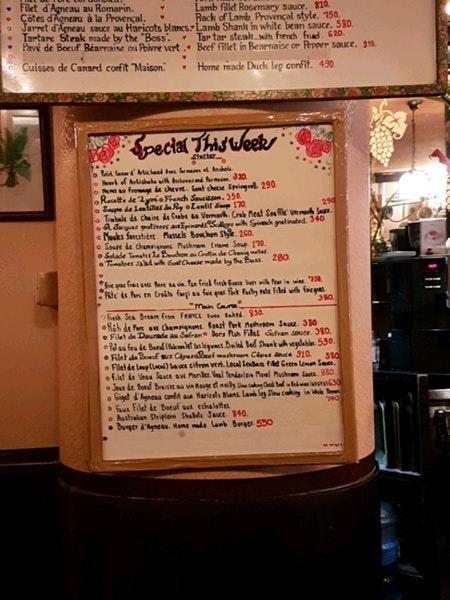 Filet d'Agneau au Romarin. Lamb fillet Rosemary sauce. 820.
Côtes d'Agneau à la Provençal. Rack of Lamb, Provençal style. 750.
Jarret d'Agneau sauce au Haricots blancs. Lamb Shank in white bean sauce. 580.
Tartare Steak made by the "Boss". Tar tar steak..with french fried. 620.
Pavé de Boeuf Béarnaise ou Poivre vert. Beef fillet in Bearnaise or Pepper sauce. 910.
Cuisses de Canard confit "Maison". Home made Duck leg confit. 490.
Special This Week
Starter
Petit Coeur d'Artichaud avec Parmesan et Anchois.
Hearts of Artichoke with Anchovies and Parmesan. 320
Nems au fromage de chevre. Goat cheese Springroll. 290.
Rosette de "Lyon" French Saucisson. 350.
Soupe de Lentilles du Puy Lentil Soup 170
Timbale de Chairs de Crabe au Vermouth. Crab Meat Soufflé Vermouth Sauce. 290
St Jacques gratinées aux Epinards Scallops with Spinach gratinated. 340
Moules Forestière. Mussels Bouchon Style. 260.
Soupe de champignons. Mushroom Creame Soup. 170.
Salade Tomates Le Bouchon au Crottin de Chavignotes.
Tomatoes Salad with Goat Cheese made by the Boss. 280.
Foie gras frais avec Poire au vin. Pan fried fresh Goose liver with Pear in wine. 750.
Pâté de Porc en Croûte Farci au foie gras Pork Pastry Pate filled with foie gras. 380.
Main Course
Fresh Sea Bream from FRANCE Oven Baked. 830.
Rôti de Porc aux champignons. Roast Pork Mushroom Sauce. 380
Filet de Daurade au Safran Dory Fish Fillet Safran sauce. 380.
Pot au feu de Boeuf Légumes. Boiled Beef Shank with vegetables. 590.
Filet de Boeuf aux Cèpes Beef mushroom Cèpes sauce 910.
Filet de Loup (Local) Sauce citron vert. Local Seabass fillet Green Lemon Sauce. 580
Filet de Veau Sauce aux Morilles Veal Tenderloin Morel Mushroom Sauce. 880
Joue de Boeuf Braisée au vin Rouge Slow cooking Cheek Beef in Red wine 650
Gigot d'Agneau confit aux Haricots Blancs. Lamb Leg Slow cooking in White Beans 740
Faux Filet de Boeuf aux echalottes.
Australian Striploin Shallots Sauce. 840.
Burger d'Agneau. Home made Lamb Burger. 550